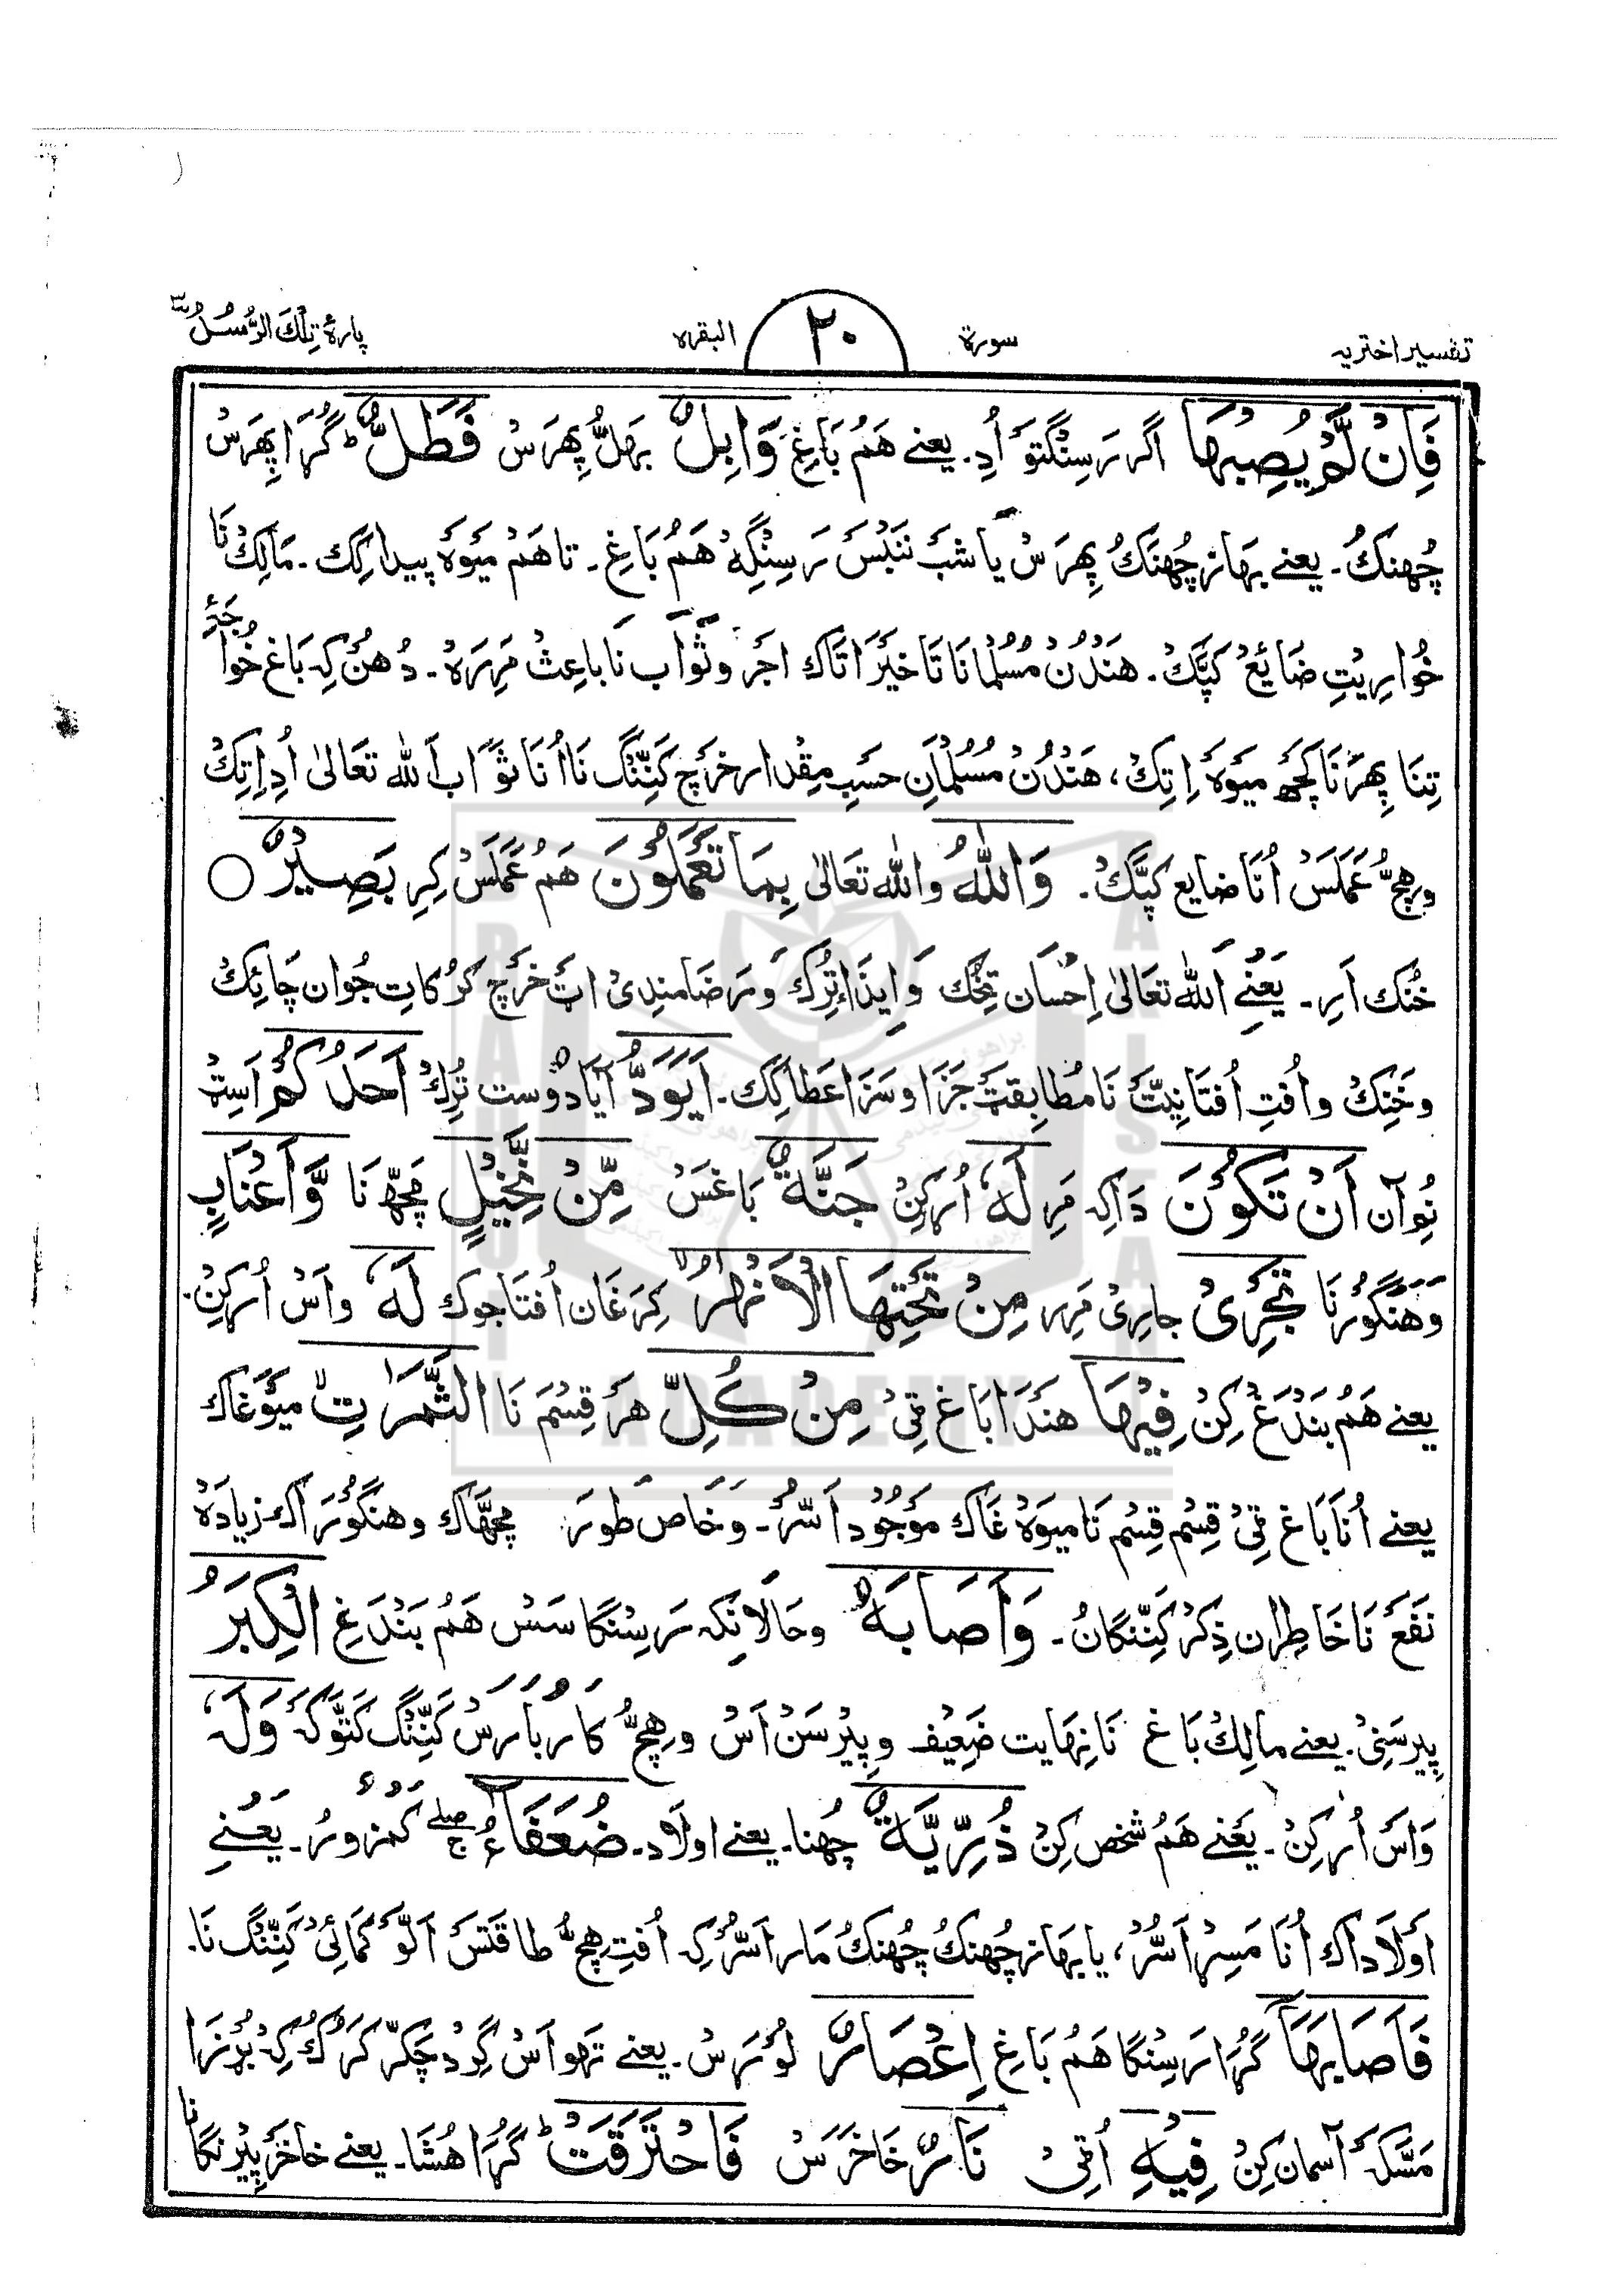 تفسیر اختریہ
سورة
۲۰
البقرہ
پارۂ تِلْكَ الرُّسُلُ ۳
فَاِنْ لَّمْ يُصِبْهَا اگر رَسِنْگتَوْ اُدِ۔ یعنے هَمُ بَاغِ وَابِلٌ بھلُّ پِھَرَسْ فَطَلٌّ ط گُرَا پِھَرَسْ
چُھنکُ۔ یعنے بھاز چُھنَکُ پِھَرَسْ یا شبَ نَنبَسْ رَسِنْگِهْ هَمُ بَاغِ۔ تا هَمْ مَیْوَهْ پیدا کِکْ۔ مَالِكْ نَا
خُوَارِیْتِ ضَائِعْ کَپَّكْ۔ هَنْدُنْ مُسُلْمَانَا تَا خَیْرَاتَاك اَجَرْ وثَوَاب نَا باعِثْ مَرِرَهْ۔ دُهُنْ کِہ بَاغ خُوَاجَهْ
تِنَا پِھَرْ نَا کَچْھ مَیْوَهْ اِتِكْ، هَنْدُنْ مُسُلْمَانِ حَسَبِ مِقْدَار خَرَچ کَنِنْگ نَا اُنَا ثَوَاب اَللّٰه تَعَالىٰ اُدِ اِتِكْ
و ھِچُّ عَمَلَسْ اُنَا ضایع کَپَّكْ۔ وَاللّٰهُ وَاللّٰه تَعَالىٰ بِمَا تَعْمَلُوْنَ هَمُ عَمَلَسْ کِرِ بَصِيْرٌ ○
خُنك اَرِ۔ یَعْنِے اَللّٰه تعَالىٰ اِحْسَان تِخَّكْ وَ اِیذَا تِرُكْ وَ رَضَامندِیْ اَٹ خَرَچ کَرُکَاتِ جُوان چَائِكْ
وخَنِكْ و اُفتِ اُفتَا نِیَّتْ نَا مُطَابِقتَ جَزَا و سَزَا عَطا کِك۔ اَيَوَدُّ آیَا دوست تُرِكْ اَحَدُكُمْ اَسِٹ
نُو آن اَنْ تَكُوْنَ دَا کِہ مَرِ لَهٗ اُرکِنْ جَنَّةٌ بَاغَسْ مِّنْ نَّخِيْلٍ مَچّھ نَا وَّاَعْنَابٍ
وَهَنْگُوْر نَا تَجْرِيْ جارِیْ مَرِر مِنْ تَحْتِهَا الْاَنْهٰرُ کِرَغَان اُفتَا جوك لَهٗ و اَسْ اُرکِنْ۔
یعنے هَمُ بَنْدَغْ کِنْ فِيْهَا هَنْدَا بَاغ ٹِیْ مِنْ كُلِّ هَرْ قِسْم نَا الثَّمَرٰتِ مَیْوَغَاك
یعنے اُنَا بَاغ ٹِیْ قِسْم قِسْم نَا مِیْوَهْ غَاك مَوْجُود اَسُّرْ۔ وَخَاصْ طَورَ مچھَّاك وهَنگُوْرَاك زیادَهْ
نَفَعْ نَا خَاطِران ذِکَرْ کَنِنْگانُ۔ وَاَصَابَهُ وحَالَانِکہ رَسِنْگا سَسْ هَمُ بَنْدَغِ الْكِبَرُ
پِیرسَنِیْ۔ یعنے مالِكْ بَاغ نَا نِهَایت ضَعِیف و پِیْرسَنْ اَسْ و ھِچُّ کَارُبَارَسْ کَنِنْگ کَتَّوکَہ وَلَهٗ
وَ اَسْ اُرکِنْ۔ یَعْنے هَمُ شخص کِنْ ذُرِّيَّةٌ چُھنا۔ یعنے اولَاد۔ ضُعَفَآءُ کَمْزورُ۔ یَعْنے
اَوْلَادَاك اُنَا مَسِرْ اَسُّرْ، یا بھاز چُھنكُ چُھنكُ مَار اَسُّرْ کِہ اُفتِ ھِچُّ طاقَتَسْ اَلَّو کَمَائِیْ کَنِنْگ نَا۔
فَاَصَابَهَا گُرَا رَسِنْگا هَمُ بَاغِ اِعْصَارٌ لُوْرَسْ۔ یعنے تَھو اَسْ گِرد چَکّر کَرُكْ کِہ بُرزَا
مَسَّکَ آسمان کِنْ فِيْهِ اُٹِیْ نَارٌ خَاخَرَسْ فَاحْتَرَقَتْ ط گُرَا هُشَا۔ یعنے خاخَر پِیْرنگا نَا